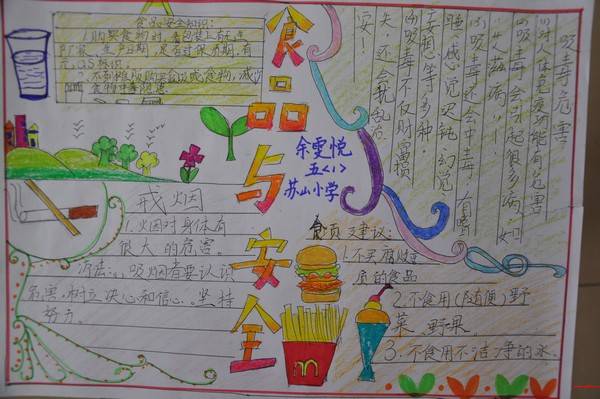 食品安全知识:
1.购买食物时,看包装上有无
厂家、生产日期,是否过保质期,有
无QS标识。
2.不到摊贩购买 食物,减少
食物中毒
食品与安全
余雯悦
五〈1〉
苏山小学
吸毒危害
(1)对人体免疫功能有危害
(2)吸毒会引起很多病,如
"艾滋病"!
(3)吸毒还会中毒,有嗜
睡感觉迟钝、幻觉
妄想等多种
(4)吸毒不仅财富损
失,还会扰乱治
安!
戒烟
1.火因对身体有
很大的危害。
办法:1、吸烟者要认识
危害,树立决心和信心、坚持
努力。
食品建议:
1.不买腐败变
质的食品
2.不食用(随便)野
菜、野果。
3.不食用不洁净的水。